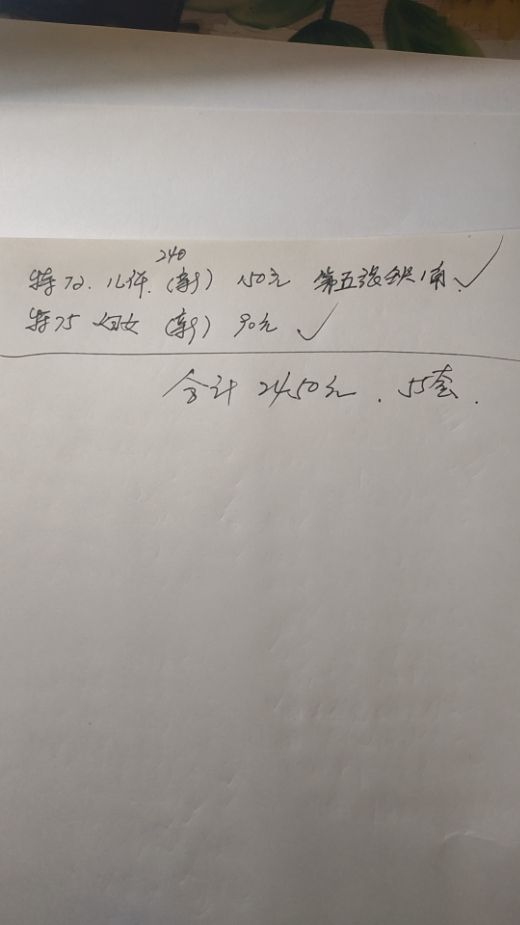 240
特72. 儿体. (新) 150元 第五张缺1角 ✓
特75 妇女 (新) 90元 ✓
合计 2450元. 55套.